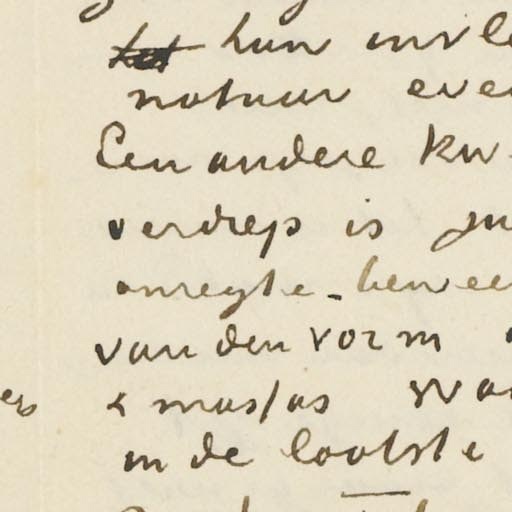 hun invl
natuur even
Een andere kw
verdiep is ju
onregte - bewee
van den vorm
& massas Wa
ers
in de laatste